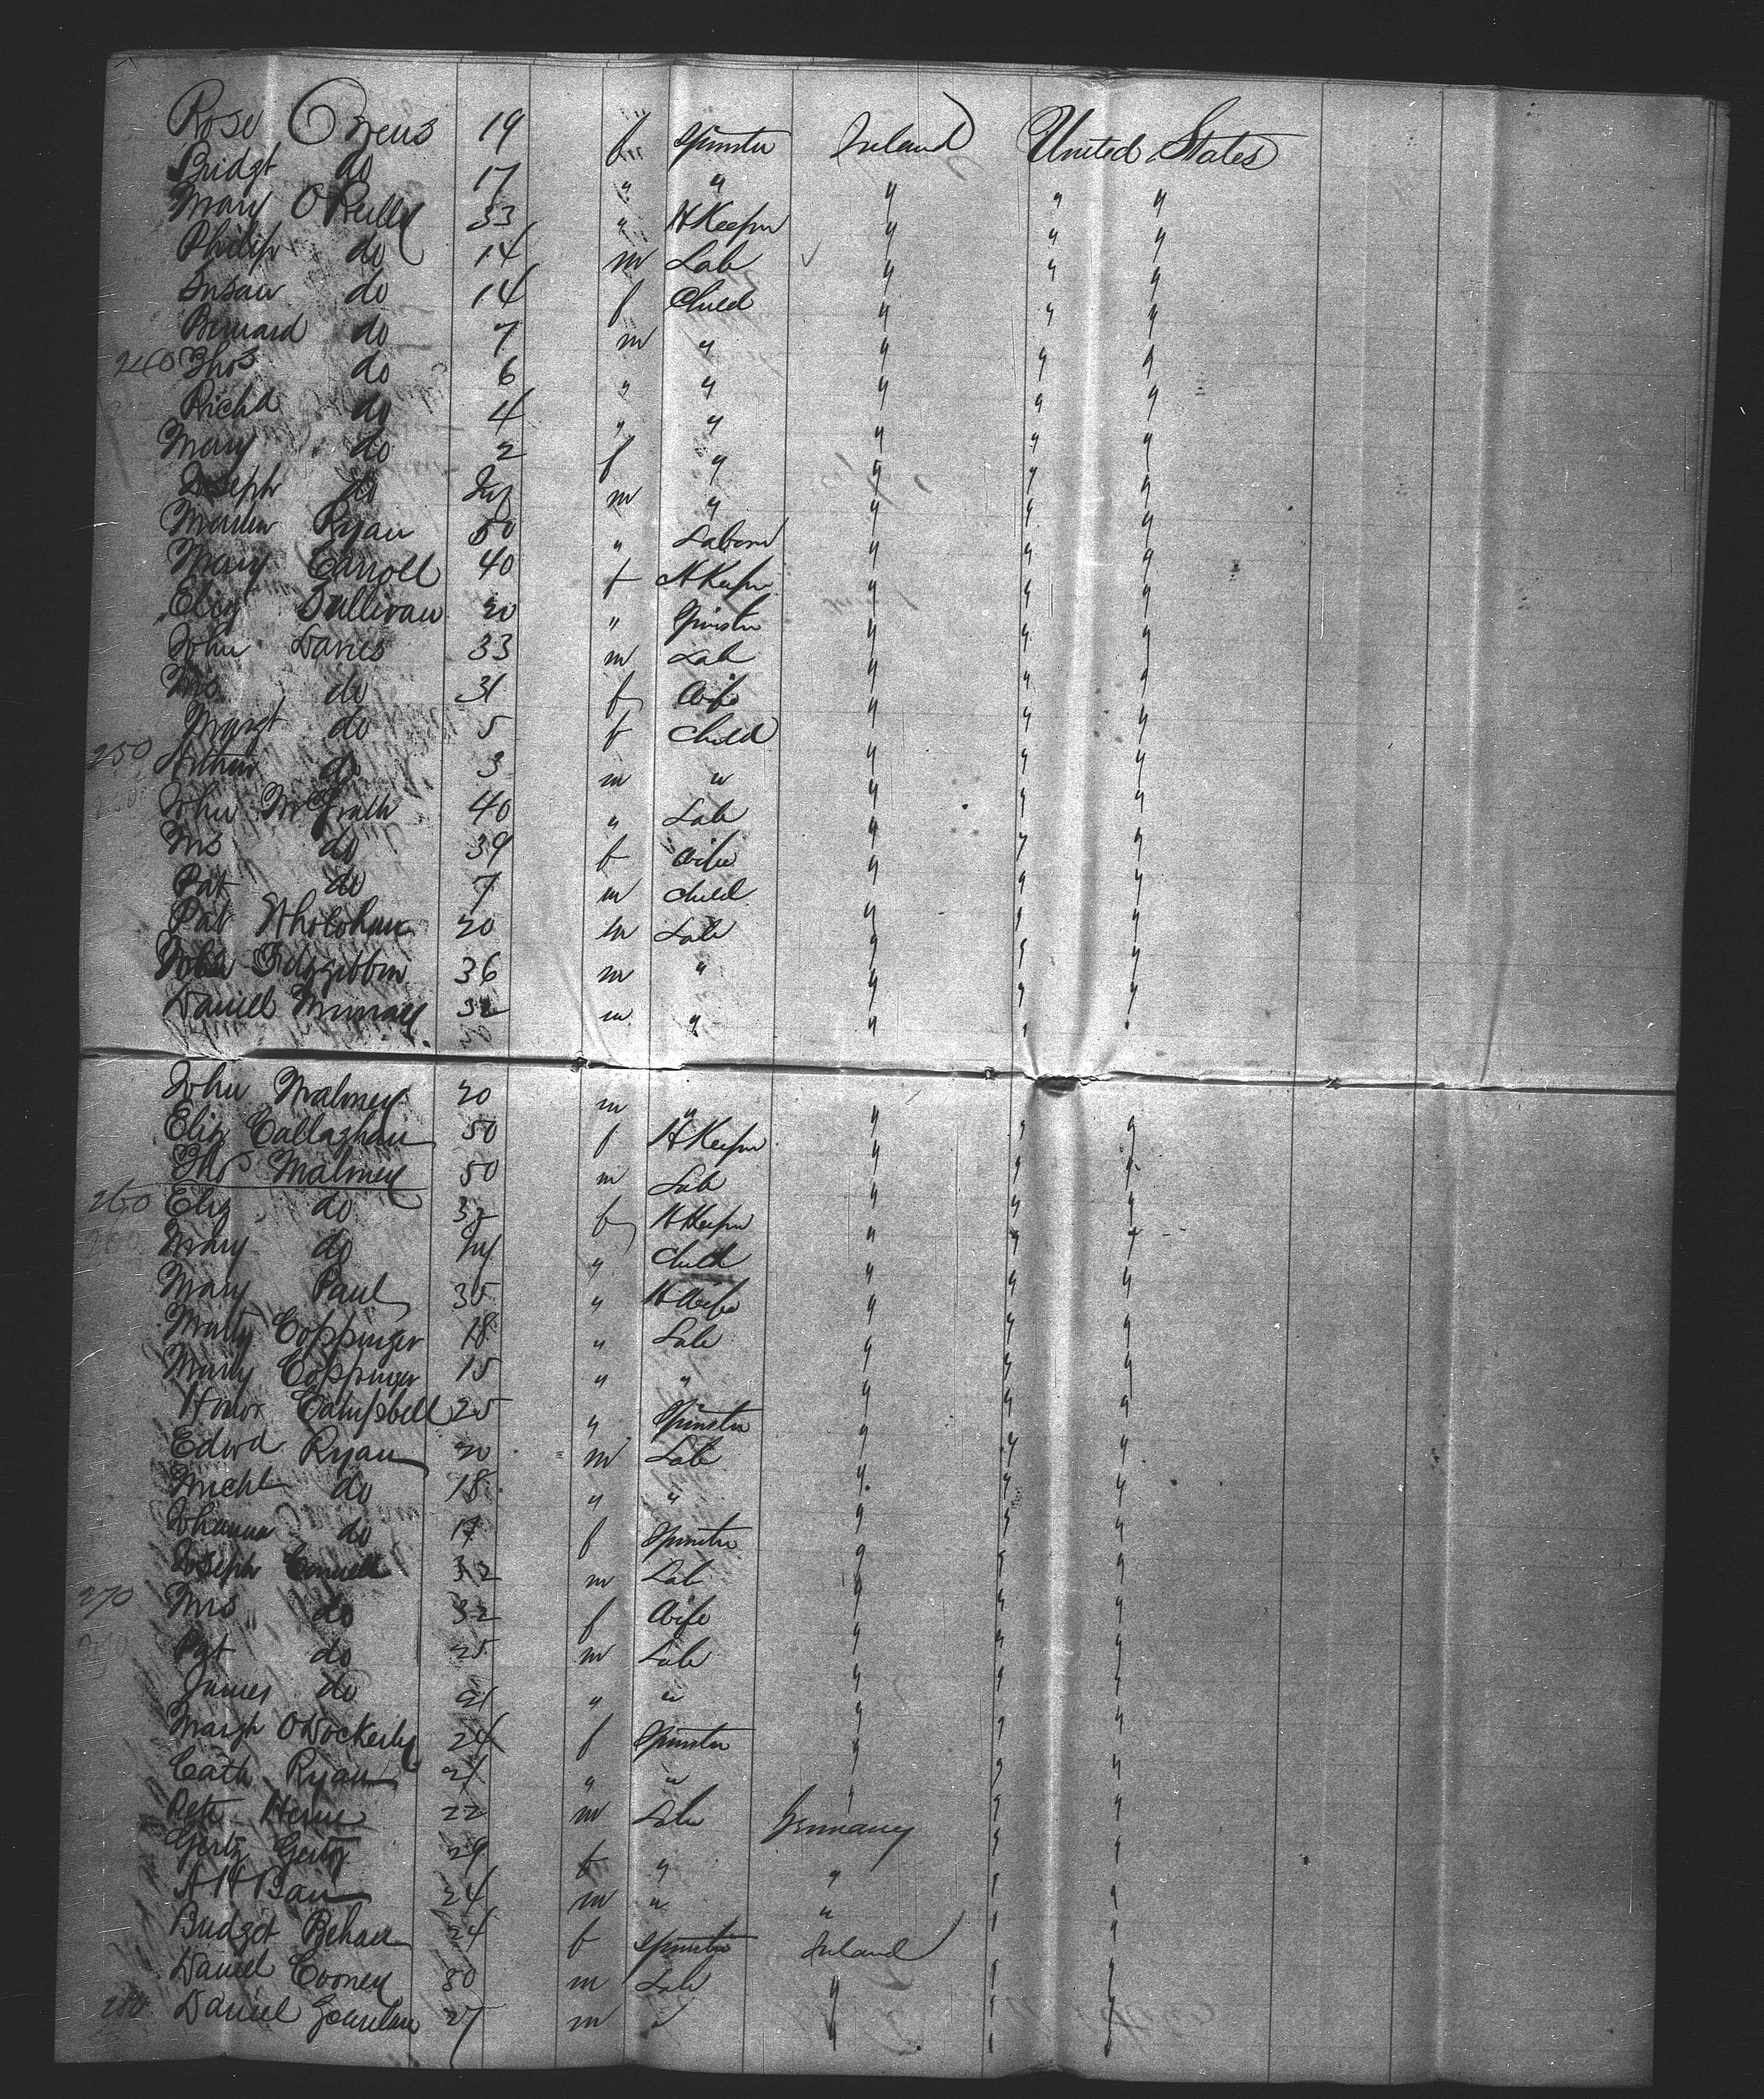 Rose Owens 19 f Spinster Ireland United States
Bridgt do 17 " " " " "
Mary O'Reilly 33 " H Keeper " " "
Philip do 14 m Lab " " "
Susan do 14 f Child " " "
Bernard do 7 m " " " "
240 Thos do 6 " " " " "
Richd do 4 " " " " "
Mary do 2 f " " " "
Joseph do Inf m " " " "
Ryan 50 " Laborer " " "
Mary Carroll 40 f H Keeper " " "
Eliz Sullivan 20 " Spinster " " "
John Davies 33 m Lab " " "
Mrs do 31 f Wife " " "
Margt do 5 f Child " " "
250 Arthur do 3 m " " " "
John McGrath 40 " Lab " " "
Mrs do 39 f Wife " " "
Pat do 7 m Child " " "
Pat Wholohan 20 m Lab " " "
John Fitzgibbon 36 m " " " "
Daniel Murray 32 m " " " "
John Maloney 20 m " " " "
Eliz Callaghan 50 f H Keeper " " "
Thos Maloney 50 m Lab " " "
260 Eliz do 32 f H Keeper " " "
Mary do Inf " Child " " "
Mary Paul 35 " H Wife " " "
Matty Coppinger 18 " Lab " " "
Mary Coppinger 15 " " " " "
Honor Campbell 25 " Spinster " " "
Edwd Ryan 20 m Lab " " "
Michl do 18 " " " " "
Johanna do 17 f Spinster " " "
Joseph Connell 32 m Lab " " "
270 Mrs do 32 f Wife " " "
Pat do 25 m Lab " " "
James do 21 " " " " "
Margt O'Dockerty 24 f Spinster " " "
Cath Ryan 21 " " " " "
Pett 22 m Lab Germany " "
Gertz 29 f " " " "
A H Bau 24 m " " " "
Bridget Behan 24 f Spinster Ireland " "
Daniel Cooney 30 m Lab " " "
280 Daniel 27 m " " " "